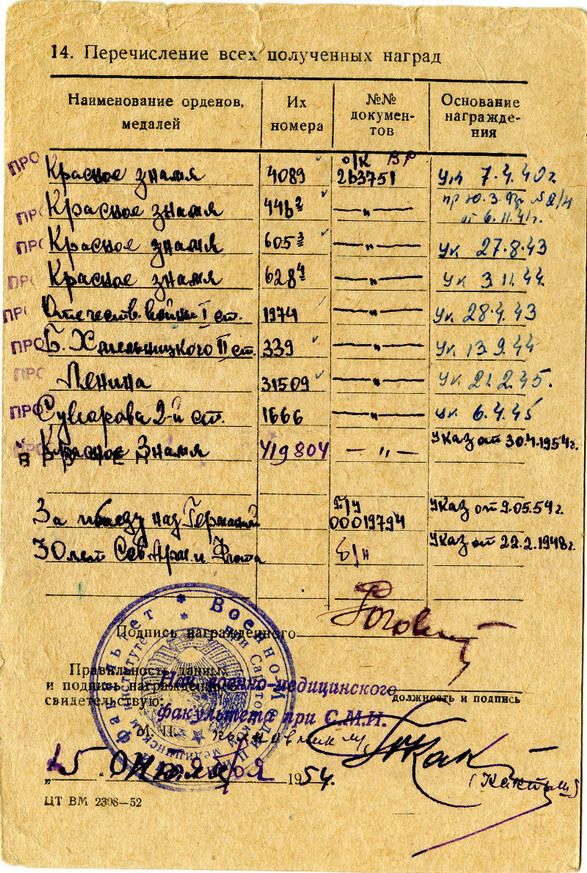 14. Перечисление всех полученных наград
Наименование орденов, медалей | Их номера | №№ документов | Основание награждения
о/к ВР
ПРО Красное знамя 4089 263751 Ук 7.4.40г.
ПРО Красное знамя 446/2 —„— от 6.11.41г.
ПРО Красное знамя 605/3 —„— Ук 27.8.43
ПРО Красное знамя 628/4 —„— Ук 3 11.44
ПРО Отечеств. войны I ст. 1974 —„— Ук 28.4.43
ПРО Б. Хмельницкого II ст. 339 —„— Ук 13.9.44
ПРО Ленина 31509 —„— Ук 21.2.45.
ПРО Суворова 2-й ст. 1666 —„— Ук 6.4.45
ПРО Красное Знамя 419804 — „ — Указ от 30.4.1954г.
За победу над Германией 00019794 Указ от 9.05.54г.
30 лет Сов. Арм. и Флота б/н Указ от 22.2.1948г.
Подпись награжденного
Правильность данных
и подпись награжденного
свидетельствую:
Нач. военно-медицинского
факультета при С.М.И.
должность и подпись
М. П. полковник м/с
„15. Октября 1954.
ЦТ ВМ 2308—52